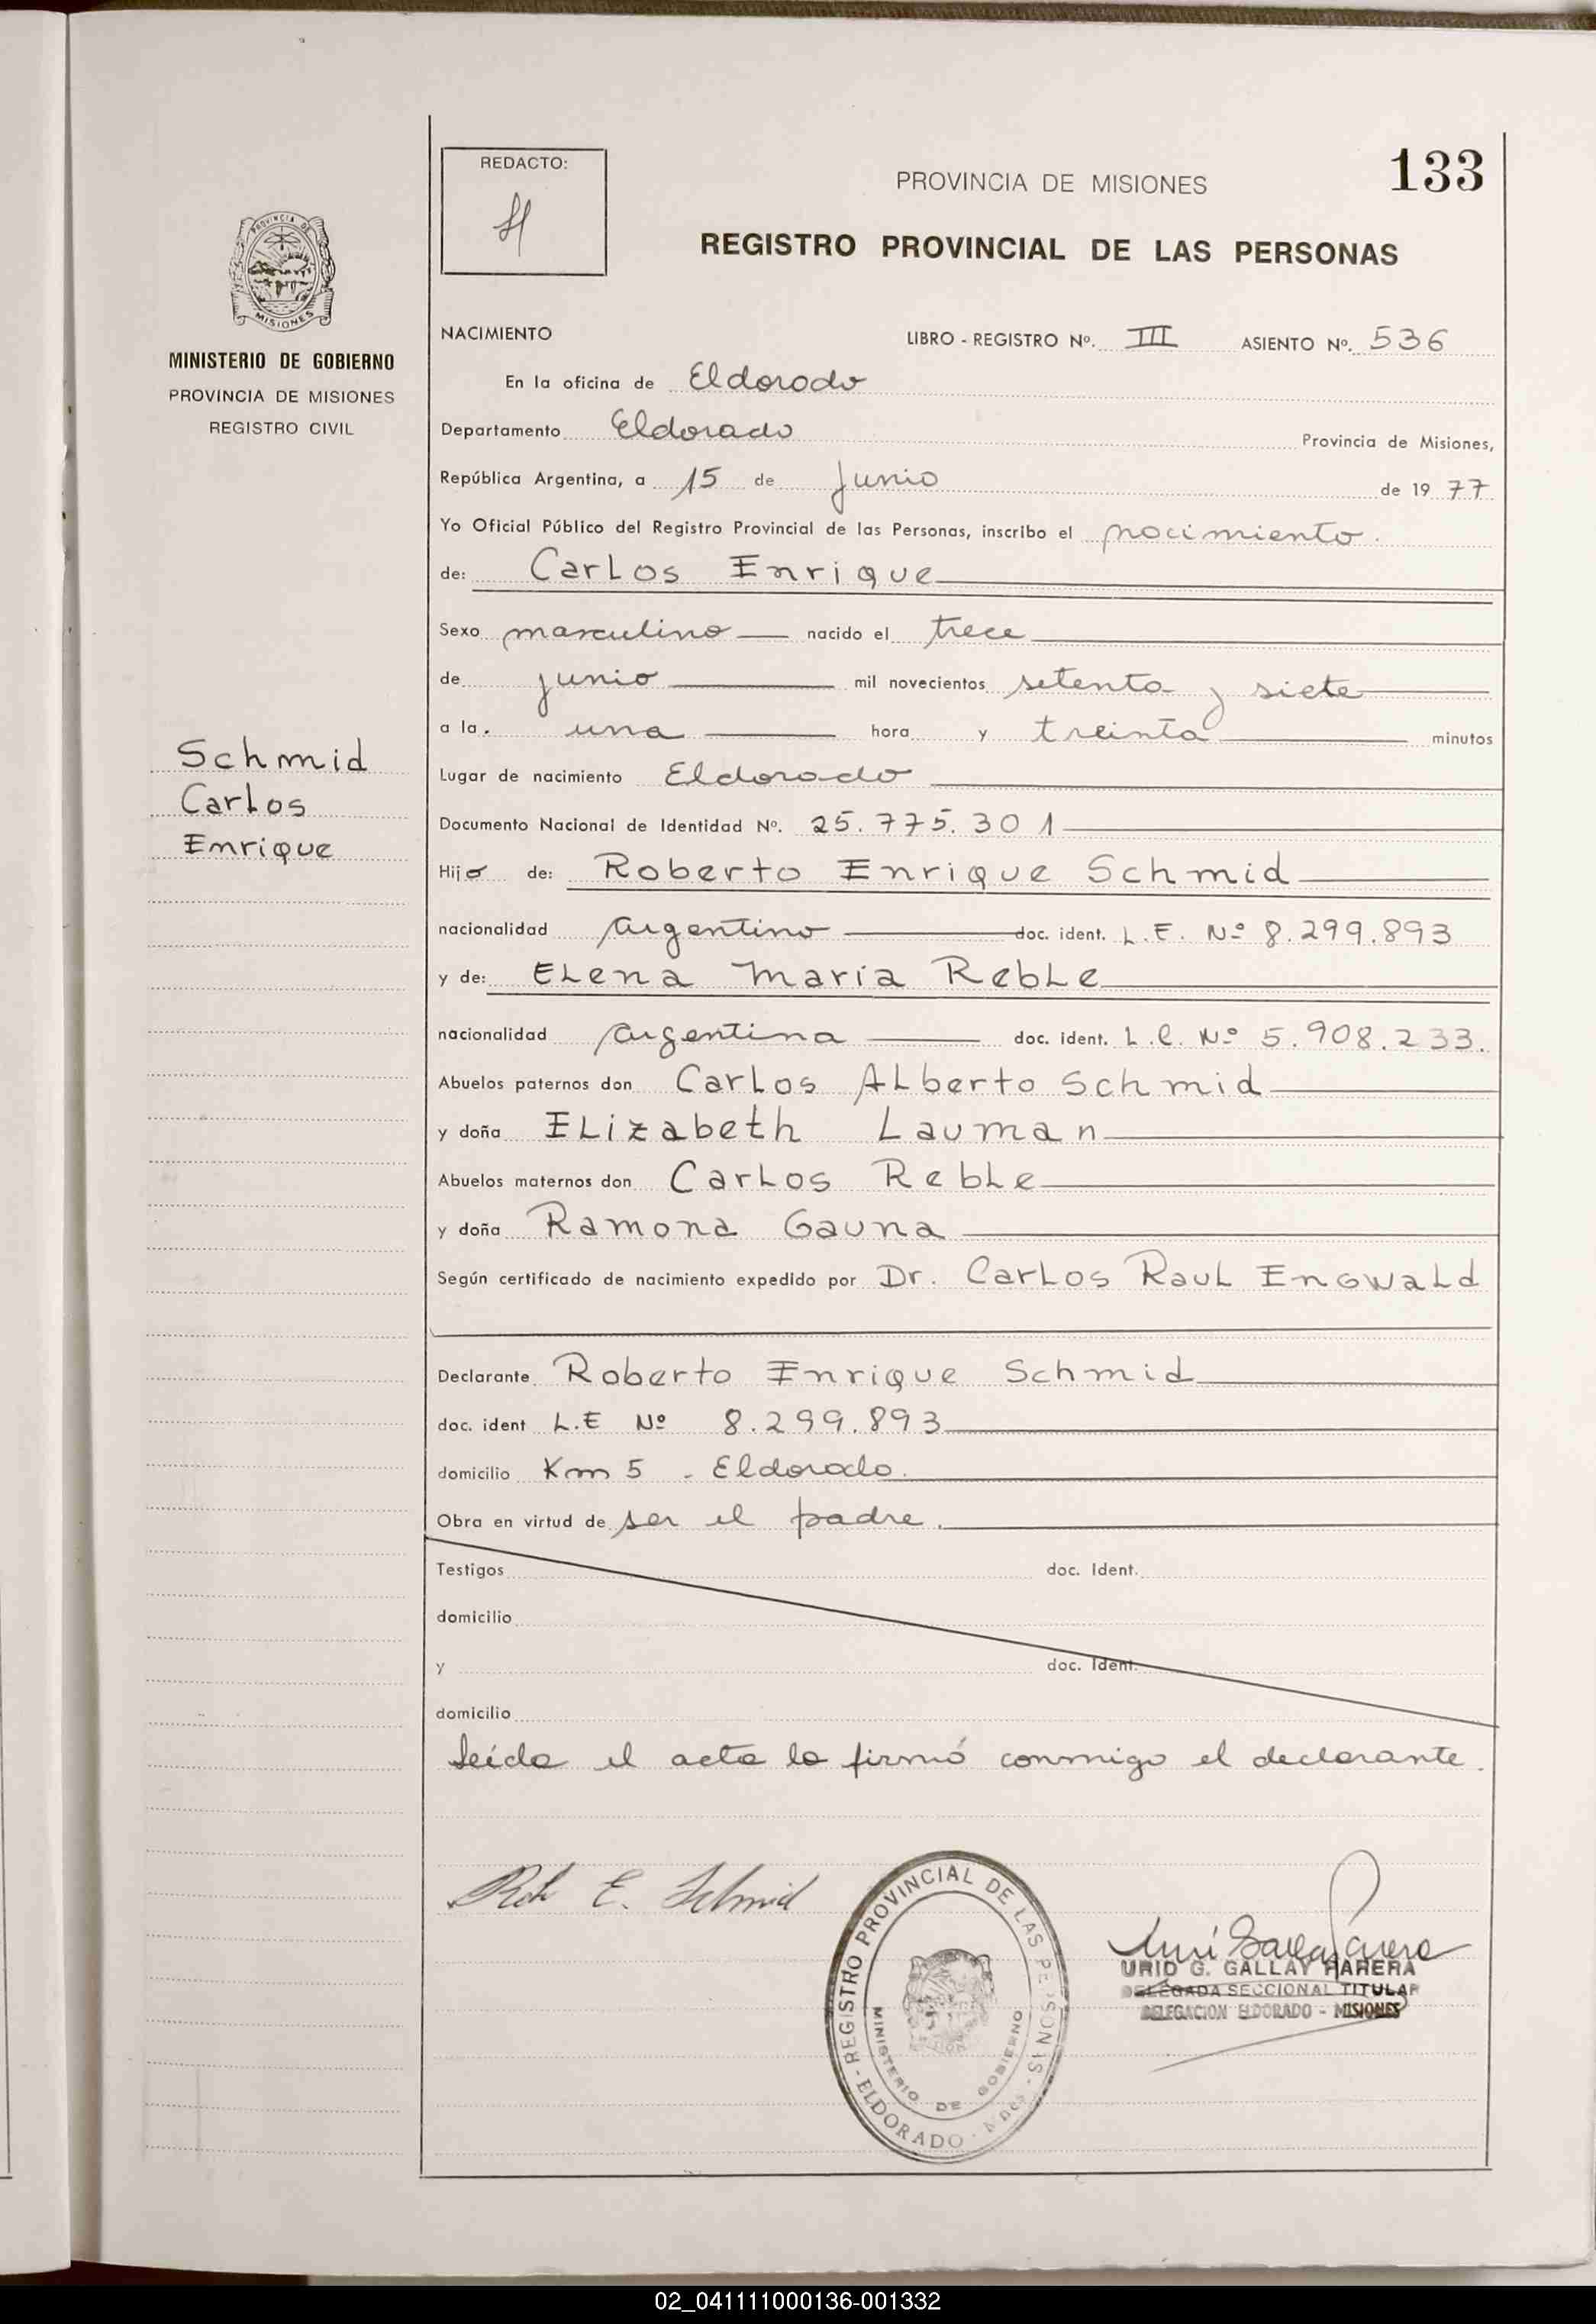 133
REDACTO:
PROVINCIA DE MISIONES
REGISTRO PROVINCIAL DE LAS PERSONAS
PROVINCIA DE
MISIONES
MINISTERIO DE GOBIERNO
PROVINCIA DE MISIONES
REGISTRO CIVIL
Schmid
Carlos
Enrique
NACIMIENTO LIBRO - REGISTRO Nº. III ASIENTO Nº. 536
En la oficina de Eldorado
Departamento Eldorado Provincia de Misiones,
República Argentina, a 15 de junio de 1977
Yo Oficial Público del Registro Provincial de las Personas, inscribo el nacimiento.
de: Carlos Enrique
Sexo masculino nacido el trece
de junio mil novecientos setenta y siete
a la. una hora y treinta minutos
Lugar de nacimiento Eldorado
Documento Nacional de Identidad Nº. 25.775.301
Hijo de: Roberto Enrique Schmid
nacionalidad argentino doc. ident. L.E. Nº 8.299.893
y de: Elena Maria Reble
nacionalidad argentina doc. ident. L.C. Nº 5.908.233.
Abuelos paternos don Carlos Alberto Schmid
y doña Elizabeth Lauman
Abuelos maternos don Carlos Reble
y doña Ramona Gauna
Según certificado de nacimiento expedido por Dr. Carlos Raul Engwald
Declarante Roberto Enrique Schmid
doc. ident L.E Nº 8.299.893
domicilio Km 5 - Eldorado.
Obra en virtud de ser el padre.
Testigos doc. Ident.
domicilio
y doc. Ident.
domicilio
Leida el acta la firmó conmigo el declarante.
Rob E. Schmid
REGISTRO PROVINCIAL DE LAS PERSONAS - ELDORADO - Mnes
MINISTERIO DE GOBIERNO
URID G. GALLAY PARERA
DELEGADA SECCIONAL TITULAR
DELEGACION ELDORADO - MISIONES
02_041111000136-001332